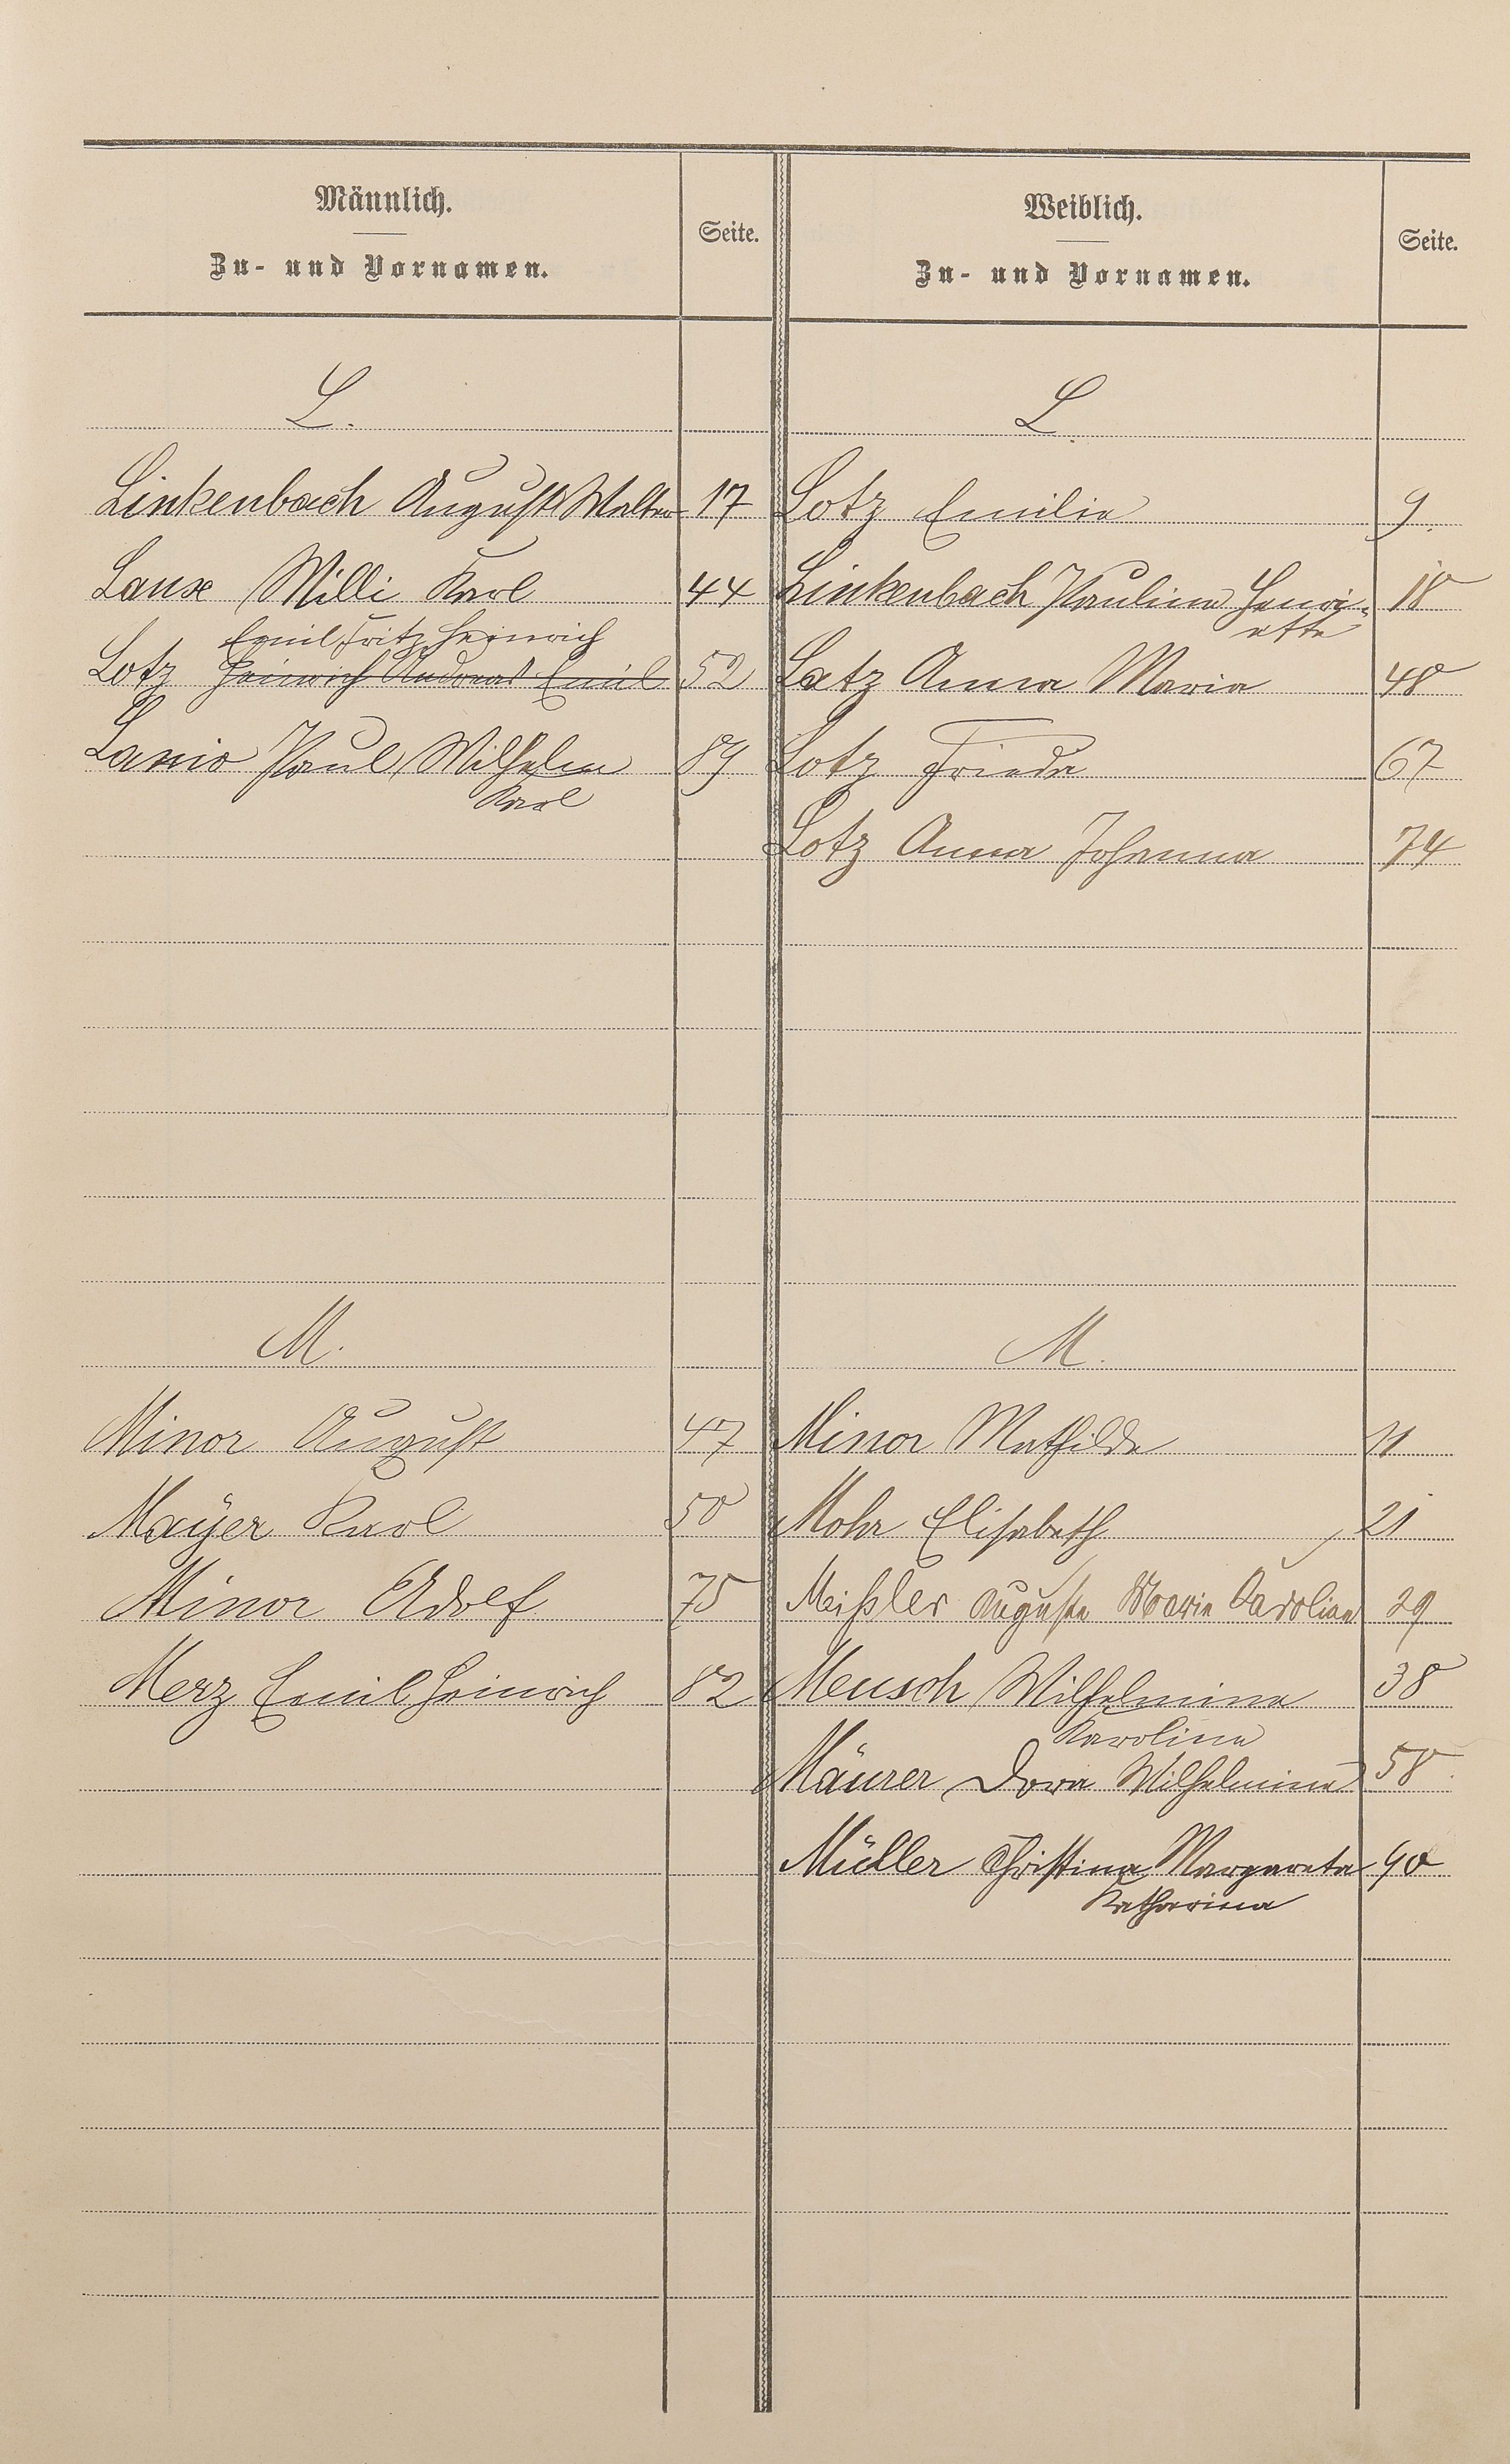 Männlich.
Zu- und Vornamen.
Seite.
Weiblich.
Zu- und Vornamen.
Seite.
L.
Linkenbach August Walter 17
Laux Willi Karl 44
Emil Fritz Heinrich
Lotz Heinrich Andreas Emil 52
Lanio Paul Wilhelm 89
Karl
M.
Minor August 47
Mayer Karl 50
Minor Adolf 75
Merz Emil Heinrich 82
L.
Lotz Emilie 9.
Linkenbach Pauline Henri- 18
ette
Lotz Anna Maria 48
Lotz Frieda 67
Lotz Anna Johanna 74
M.
Minor Mathilde 11
Mohr Elisabeth 21
Meißler Auguste Marie Karoline 29
Mensch Wilhelmine 38
Karoline
Mäurer Dora Wilhelmine 58.
Müller Christina Margareta 90
Katharina